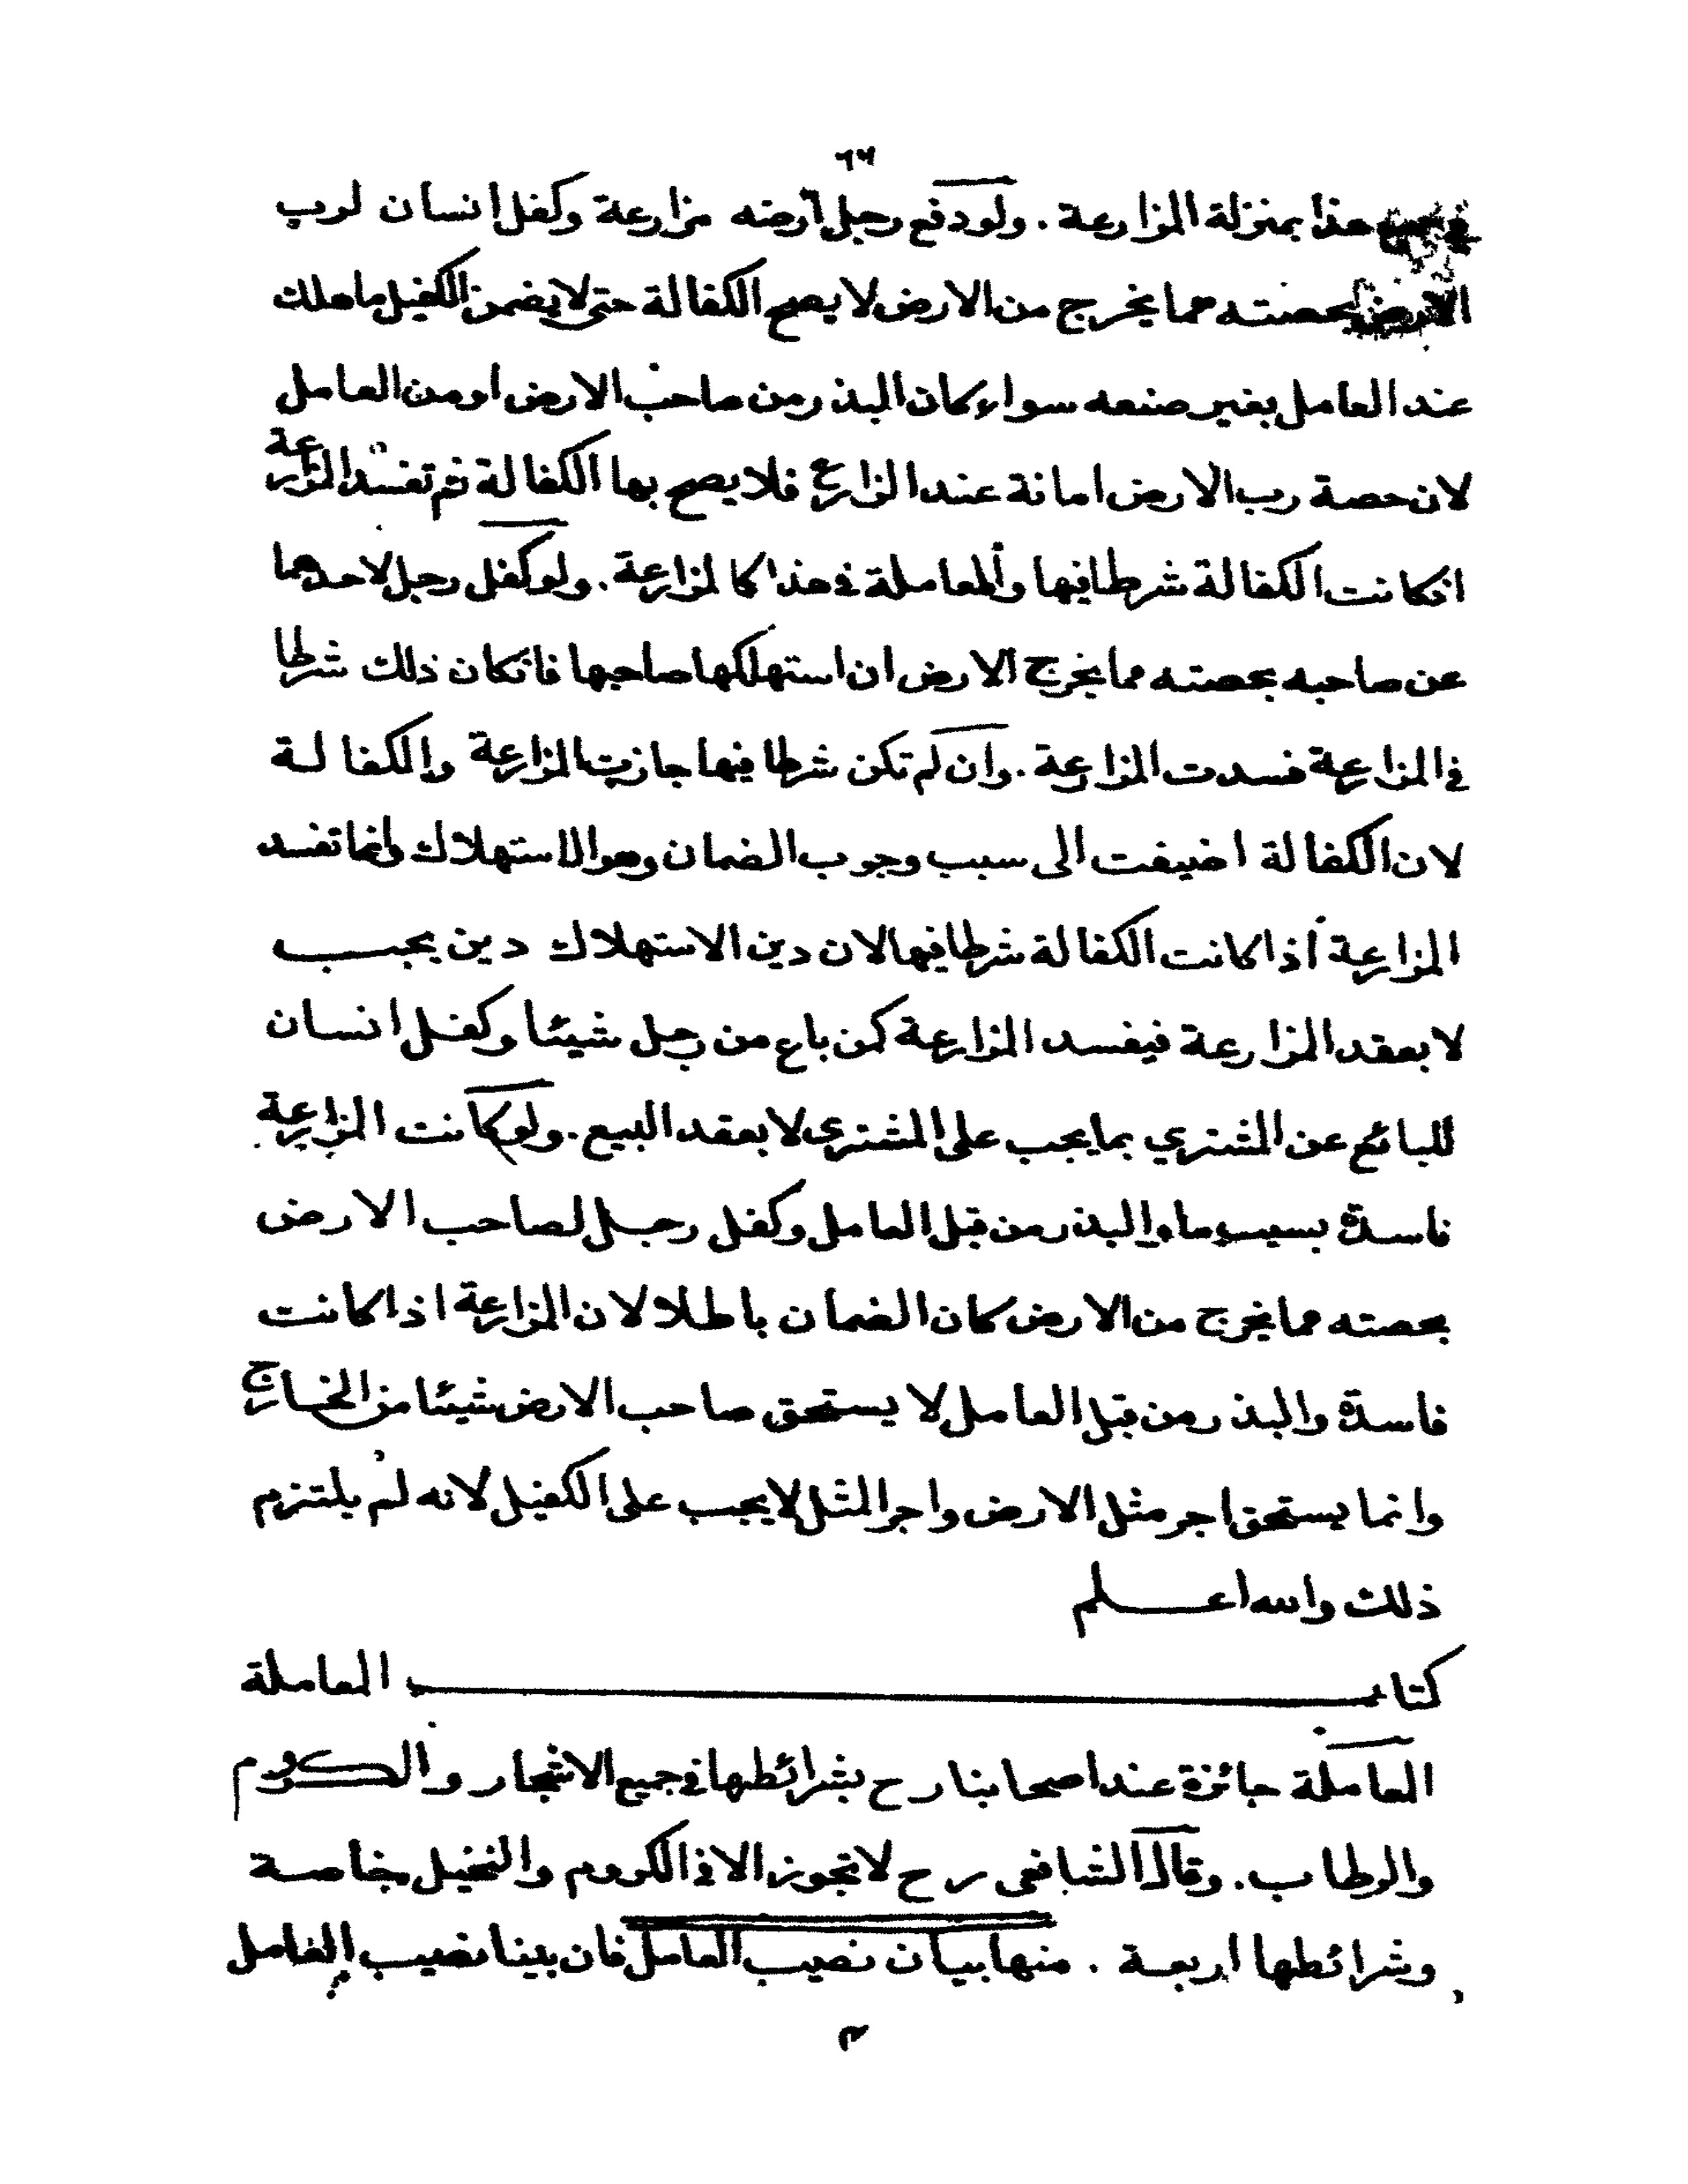 ٦٣
في جميع هذا بمنزلة المزارعة . ولو دفع رجل ارضه مزارعة وكفل انسان لرب
الارض بحصته مما يخرج من الارض لا يصح الكفالة حتى لا يضمن الكفيل ما هلك
عند العامل بغير صنعه سواء كان البذر من صاحب الارض او من العامل
لان حصة رب الارض امانة عند المزارع فلا يصح بها الكفالة ثم تفسد المزارعة
ان كانت الكفالة شرطا فيها والمعاملة في هذا كالمزارعة . ولو كفل رجل لاحدهما
عن صاحبه بحصته مما يخرج الارض ان استهلكها صاحبها فان كان ذلك شرطا
في المزارعة فسدت المزارعة . وان لم تكن شرطا فيها جازت المزارعة والكفالة
لان الكفالة اضيفت الى سبب وجوب الضمان وهو الاستهلاك وانما تفسد
المزارعة اذا كانت الكفالة شرطا فيها لان دين الاستهلاك دين يجب
لا بعقد المزارعة فيفسد المزارعة كمن باع من رجل شيئا وكفل انسان
للبائع عن المشتري بما يجب على المشترى لا بعقد البيع . ولو كانت المزارعة
فاسدة بسبب ما والبذر من قبل العامل وكفل رجل لصاحب الارض
بحصته مما يخرج من الارض كان الضمان باطلا لان المزارعة اذا كانت
فاسدة والبذر من قبل العامل لا يستحق صاحب الارض شيئا من الخارج
وانما يستحق اجر مثل الارض واجر المثل لا يجب على الكفيل لانه لم يلتزم
ذلك والله اعلم
كتاب المعاملة
المعاملة جائزة عند اصحابنا رح بشرائطها في جميع الاشجار والكروم
والرطاب . وقال الشافعى رح لا تجوز الا في الكروم والنخيل خاصة
وشرائطها اربعة . منها بيان نصيب العامل فان بينا نصيب العامل